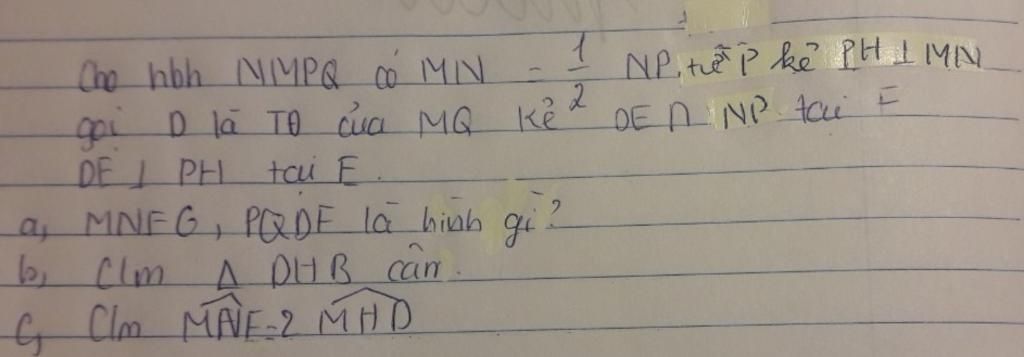 Cho hbh NMPQ có MN = 1/2 NP. từ P kẻ PH ⊥ MN
gọi D là TĐ của MQ kẻ DE ∩ NP tại F
DE ⊥ PH tại E.
a, MNFG, PQDF là hình gì?
b, C/m Δ DHB cân.
C, C/m MNE = 2 MHD